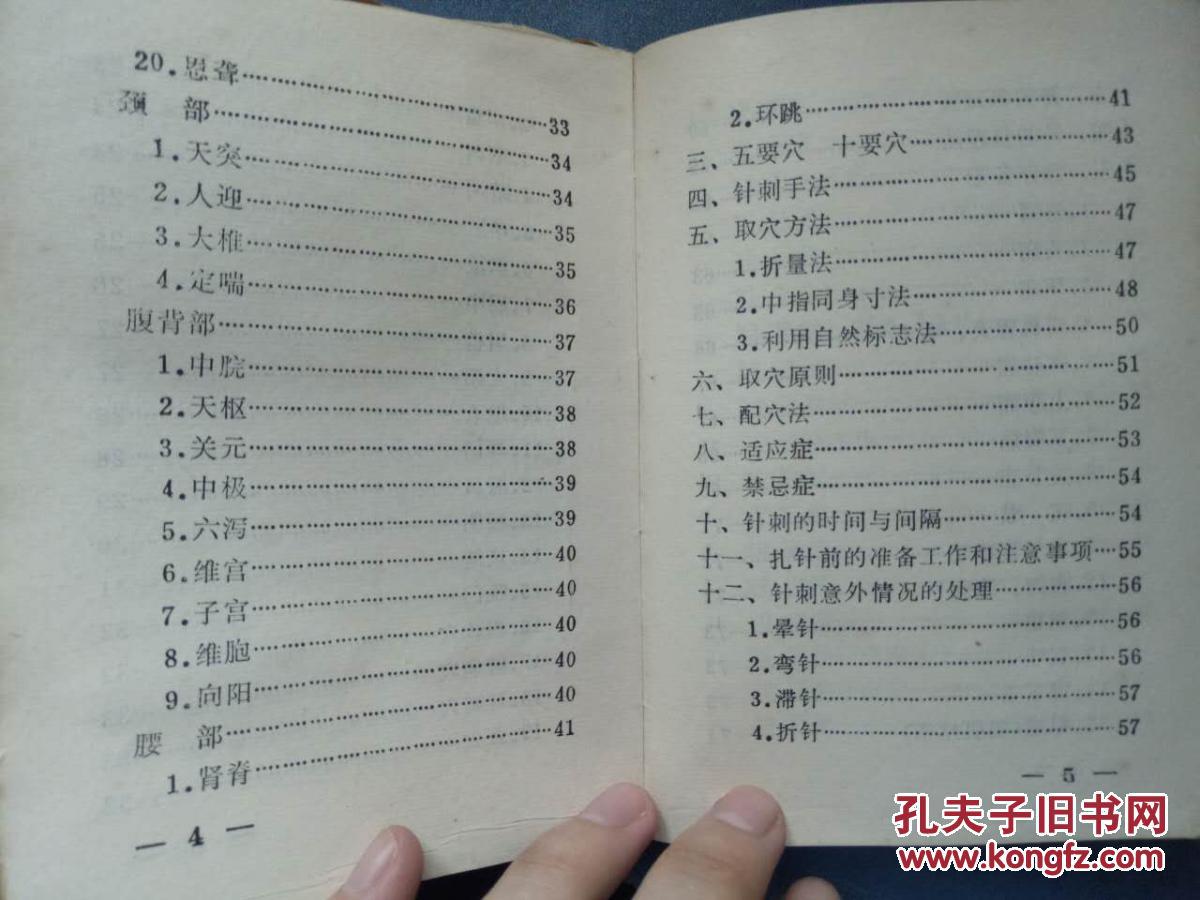 20.恩聋……33
颈　部……34
1.天突……34
2.人迎……35
3.大椎……35
4.定喘……36
腹背部……37
1.中脘……37
2.天枢……38
3.关元……38
4.中极……39
5.六泻……39
6.维宫……40
7.子宫……40
8.维胞……40
9.向阳……40
腰　部……40
1.肾脊……41
— 4 —
2.环跳……41
三、五要穴　十要穴……43
四、针刺手法……45
五、取穴方法……47
1.折量法……47
2.中指同身寸法……48
3.利用自然标志法……50
六、取穴原则……51
七、配穴法……52
八、适应症……53
九、禁忌症……54
十、针刺的时间与间隔……54
十一、扎针前的准备工作和注意事项…55
十二、针刺意外情况的处理……56
1.晕针……56
2.弯针……56
3.滞针……57
4.折针……57
— 5 —
孔夫子旧书网
www.kongfz.com